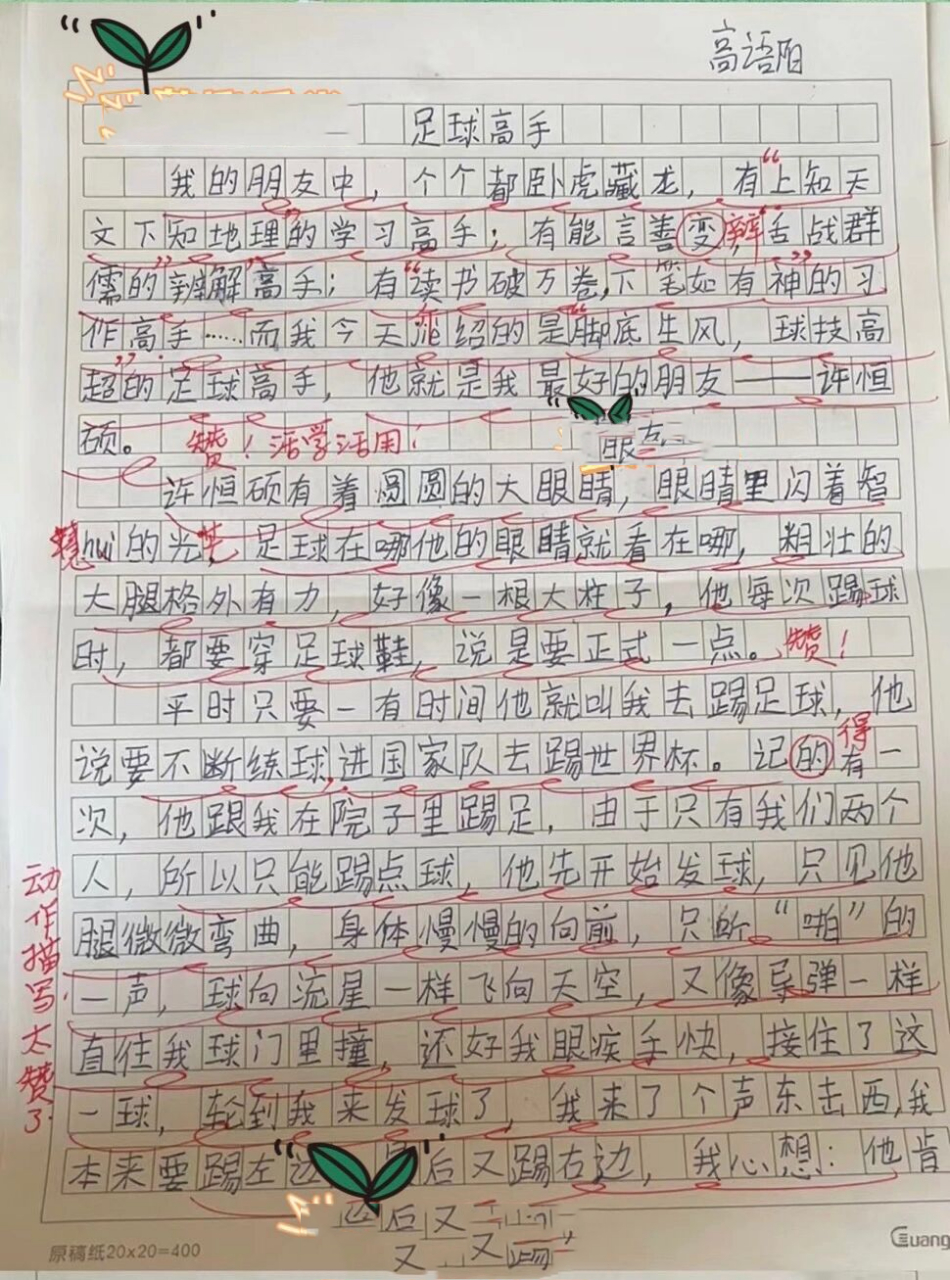 高语阳
足球高手
我的朋友中，个个都卧虎藏龙，有“上知天
文下知地理”的学习高手；有能言善变辩“舌战群
儒的”辨解高手；有“读书破万卷,下笔如有神”的习
作高手……而我今天介绍的是“脚底生风，球技高
超”的足球高手，他就是我最好的朋友——许恒
硕。 赞！活学活用！
眼
许恒硕有着圆圆的大眼睛，眼睛里闪着智
慧hui的光芒，足球在哪他的眼睛就看在哪，粗壮的
大腿格外有力，好像一根大柱子，他每次踢球
时，都要穿足球鞋，说是要正式一点。赞！
平时只要一有时间他就叫我去踢足球，他
说要不断练球,进国家队去踢世界杯。记的得有一
次，他跟我在院子里踢足，由于只有我们两个
人，所以只能踢点球，他先开始发球，只见他
腿微微弯曲，身体慢慢的向前，只听“啪”的
一声，球向流星一样飞向天空，又像导弹一样
直往我球门里撞，还好我眼疾手快，接住了这
一球，轮到我来发球了，我来了个声东击西,我
本来要踢左边后又踢右边，我心想：他肯
动作描写太赞了.
后又
又 又踢
原稿纸20×20=400
Guang